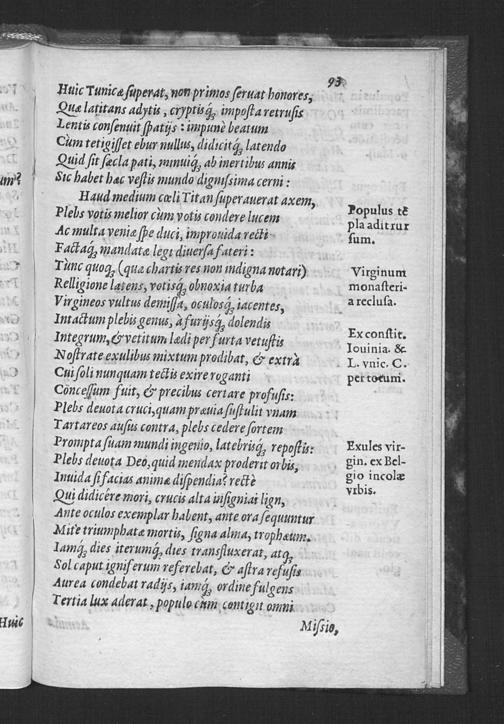 93
Huic Tunicæ superat, non primos seruat honores,
Quæ latitans adytis, cryptisq́; imposta retrusis
Lentis consenuit spatijs: impunè beatum
Cùm tetigisset ebur nullus, didicitq́; latendo
Quid sit sæcla pati, minuiq́; ab inertibus annis
Sic habet hac vestis mundo dignissima cerni:
Haud medium cœli Titan superauerat axem,
Plebs votis melior cùm votis condere lucem
Ac multa veniæ spe duci, improuida recti
Factaq́; mandatæ legi diuersa fateri:
Tùnc quoq́; (qua chartis res non indigna notari)
Relligione latens, votisq́; obnoxia turba
Virgineos vultus demissa, oculosq́; iacentes,
Intactum plebis genus, à furijsq́; dolendis
Integrum, & vetitum lædi per furta vetustis
Nostrate exulibus mixtum prodibat, & extrà
Cui soli nunquam tectis exire roganti
Concessum fuit, & precibus certare profusis:
Plebs deuota cruci, quam præuia sustulit vnam
Tartareos ausus contra, plebs cedere sortem
Prompta suam mundi ingenio, latebrisq́; repostis:
Plebs deuota Deo, quid mendax proderit orbis,
Inuida si facias animæ dispendia? rectè
Qui didicére mori, crucis alta insignia lign,
Ante oculos exemplar habent, ante ora sequuntur
Mite triumphatæ mortis, signa alma, trophæum.
Iamq́; dies iterumq́; dies transfluxerat, atq́;
Sol caput igniferum referebat, & astra refusis
Aurea condebat radijs, iamq́; ordine fulgens
Tertia lux aderat, populo cùm contigit omni
Missio,
Populus tẽ
pla aditrur
sum.
Virginum
monasteri-
a reclusa.
Ex constit.
Iouinia. &
L. vnic. C.
per totum.
Exules vir-
gin. ex Bel-
gio incolæ
vrbis.
um?
Huic